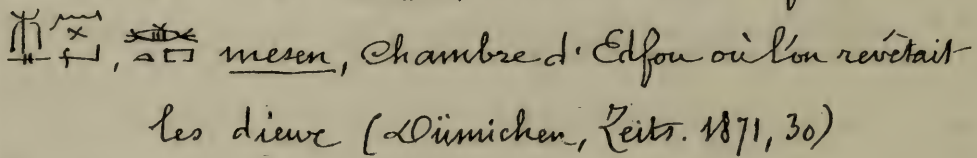 , mesen, Chambre d'Edfou où l'on revêtait
les dieux (Dümichen, Zeits. 1871, 30)